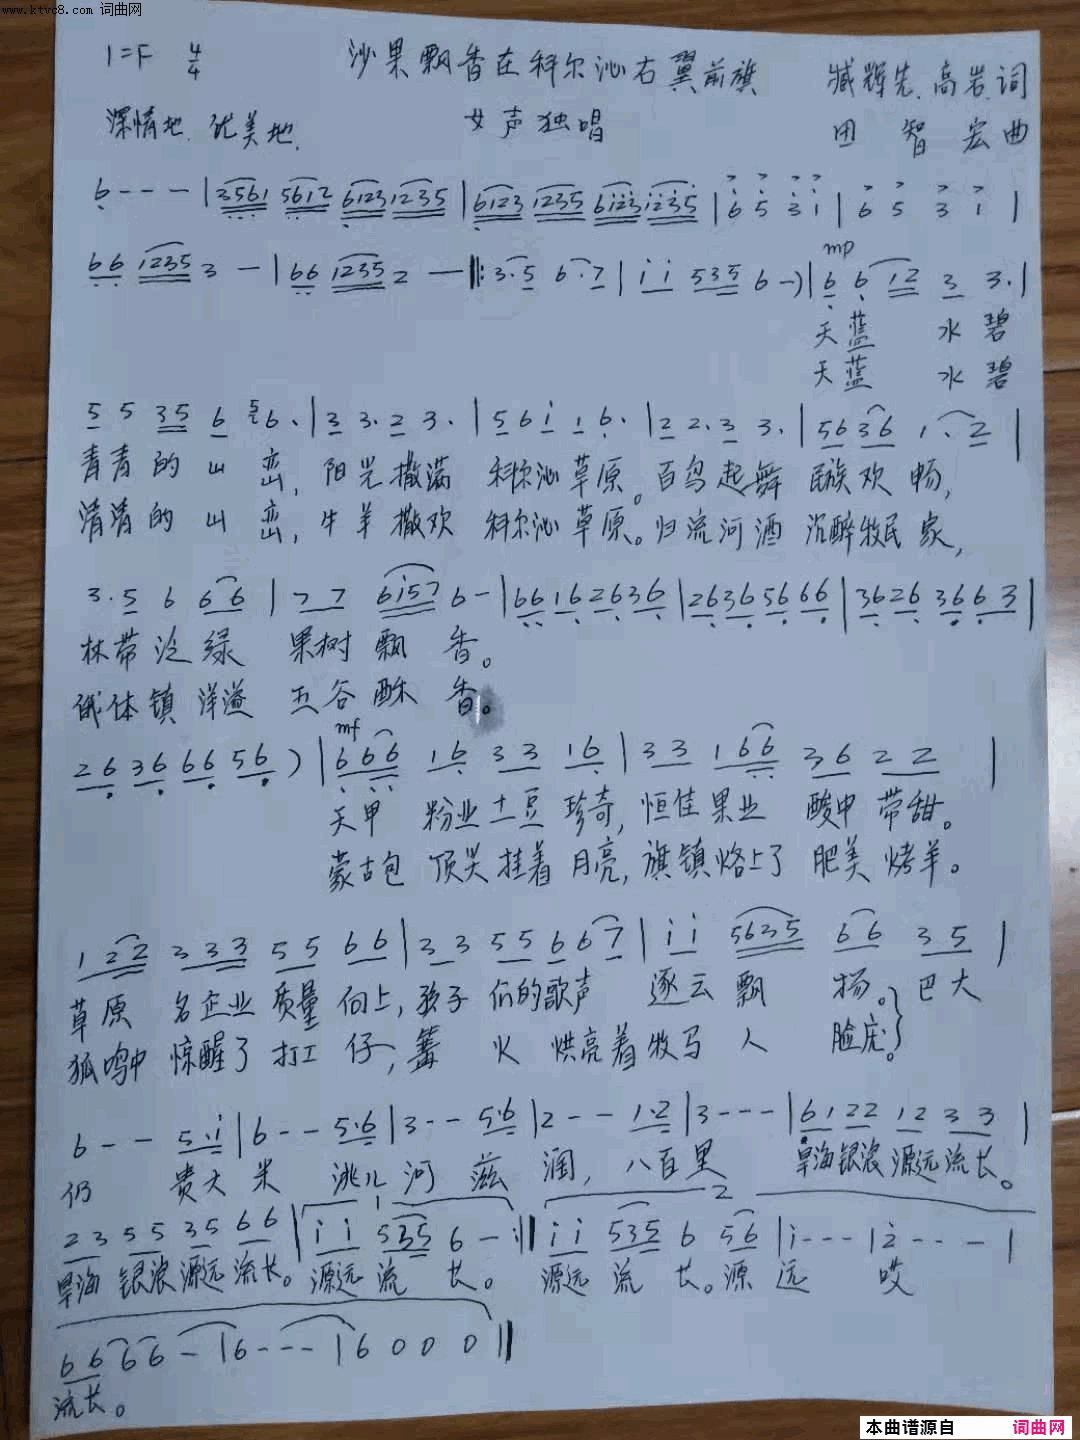 www.ktvc8.com 词曲网
1=F 4/4 沙果飘香在科尔沁右翼前旗 臧辉先、高岩词
深情地、优美地、 女声独唱 田智宏曲
6 - - - | 3561 5612 6123 1235 | 6123 1235 6123 1235 | 6 5 3 1 | 6 5 3 1 |
mp
66 1235 3 - | 66 1235 2 - ‖: 3·5 6·7 | i i 535 6 -) | 6 6 12 3 3· |
天蓝 水碧
天蓝 水碧
5 5 35 6 56· | 3 3·2 3· | 5 6 i 1 6· | 2 2·3 3· | 56 36 1·2 |
青青的山峦, 阳光撒满 科尔沁草原。百鸟起舞 民族欢畅,
清清的山峦, 牛羊撒欢 科尔沁草原。归流河酒 沉醉牧民家,
3·5 6 66 | 77 6i57 6 - | 66 16 26 36 | 26 36 56 66 | 36 26 36 63 |
林带泛绿 果树飘香。
俄体镇洋溢 五谷酥香。
mf
26 36 66 56 ) | 6 66 16 33 16 | 33 1 66 36 22 |
天甲 粉业土豆珍奇, 恒佳果业 酸中带甜。
蒙古包 顶尖挂着月亮, 旗镇烙上了 肥美烤羊。
1 22 333 55 66 | 33 55 667 | i i 5635 66 35 |
草原 名企业质量向上, 孩子们的歌声 逐云飘扬。巴大
狐鸣中惊醒了打工仔, 篝火 烘亮着牧马人 脸庞。
6 - - 5·i | 6 - - 5·6 | 3 - - 5·6 | 2 - - 1·2 | 3 - - - | 6122 12 33 |
仍 贵大米 洮儿河滋润, 八百里 旱海银浪源远流长。
1 2
23 55 35 66 | i i 535 6 - :‖ i i 535 6 56 | i - - - | 2 - - - |
旱海银浪源远流长。源远流长。 源远流长。源远 哎
66 66 - | 6 - - - | 6 0 0 0 ‖
流长。
本曲谱源自 词曲网